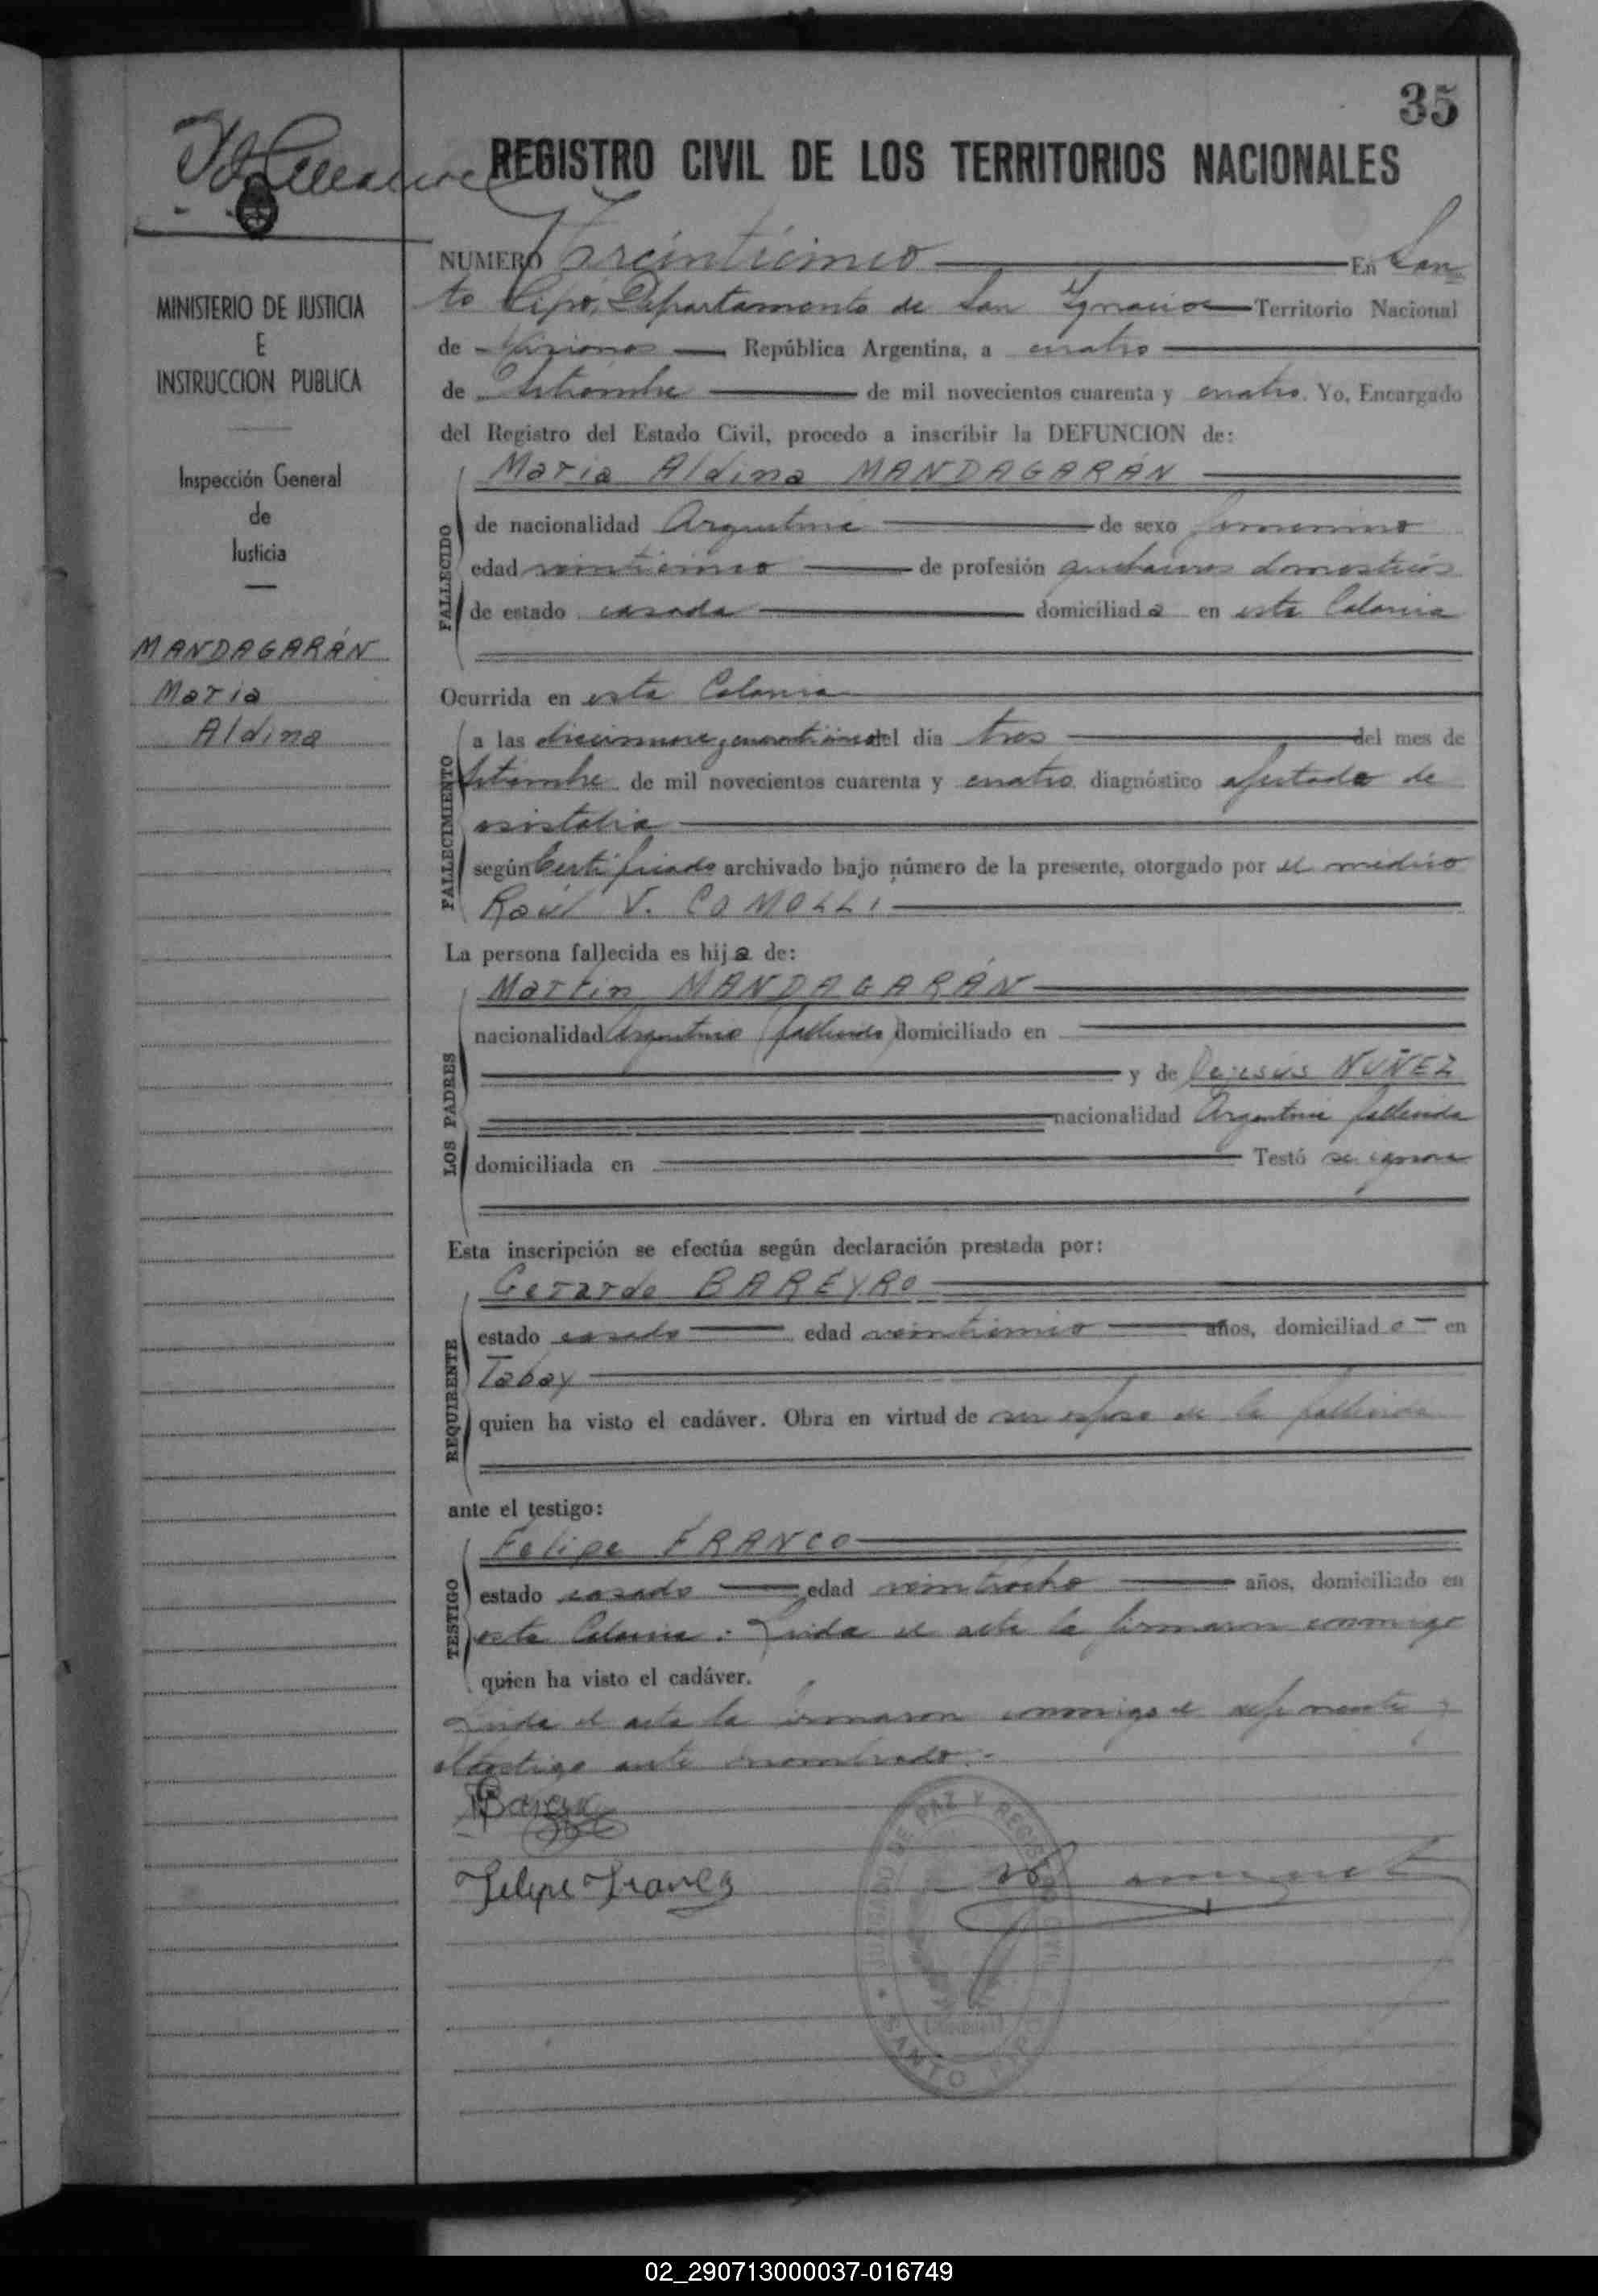 35
REGISTRO CIVIL DE LOS TERRITORIOS NACIONALES
MINISTERIO DE JUSTICIA
E
INSTRUCCION PUBLICA
Inspección General
de
Justicia
MANDAGARÁN
Maria
Aldina
NUMERO Treinticinco En San
to Pipó, Departamento de San Ignacio Territorio Nacional
de Misiones República Argentina, a cuatro
de Setiembre de mil novecientos cuarenta y cuatro. Yo, Encargado
del Registro del Estado Civil, procedo a inscribir la DEFUNCION de:
Maria Aldina MANDAGARÁN
FALLECIDO
de nacionalidad Argentina de sexo femenino
edad veinticinco de profesión quehaceres domesticos
de estado casada domiciliada en esta Colonia
Ocurrida en esta Colonia
FALLECIMIENTO
a las diecinueve y del día tres del mes de
Setiembre de mil novecientos cuarenta y cuatro diagnóstico de
según Certificado archivado bajo número de la presente, otorgado por el medico
Raúl V. COMOLLI
La persona fallecida es hija de:
LOS PADRES
Martin MANDAGARÁN
nacionalidad Argentino (fallecido) domiciliado en
y de NUÑEZ
nacionalidad Argentina fallecida
domiciliada en Testó se ignora
Esta inscripción se efectúa según declaración prestada por:
REQUIRENTE
Gerardo BAREYRO
estado casado edad años, domiciliado en
Tabay
quien ha visto el cadáver. Obra en virtud de ser esposo de la fallecida
ante el testigo:
TESTIGO
Felipe FRANCO
estado casado edad veintiocho años, domiciliado en
esta Colonia. Leida el acta la firmaron conmigo
quien ha visto el cadáver.
Leida el acta la firmaron conmigo el exponente y
el testigo ante nombrado.-
Felipe Franco
JUZGADO DE PAZ Y REGISTRO CIVIL
SANTO PIPO
02_290713000037-016749